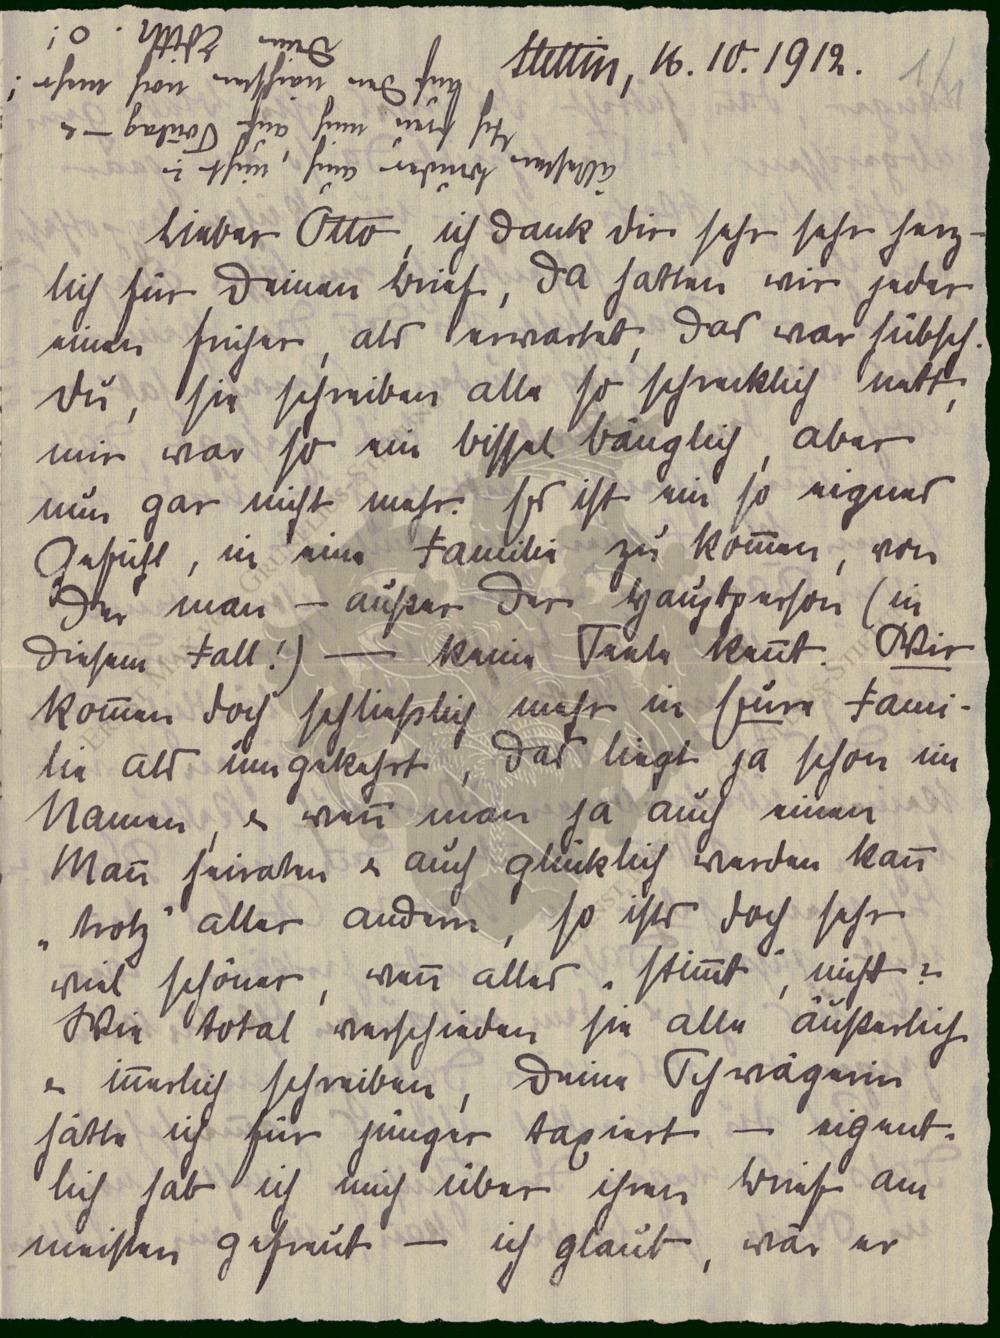 Stettin, 16. 10. 1912.
1/1
Lieber Otto, ich dank dir sehr sehr herz-
lich für Deinen Brief, da hatten wir jeder
einen früher, als erwartet, das war hübsch.
Du, sie schreiben alle so schrecklich nett,
mir war so ein bissel bänglich, aber
nun gar nicht mehr. Es ist ein so eignes
Gefühl, in eine Familie zu kom̄en, von
der man – außer der Hauptperson (in
diesem Fall!) — keine Seele ken̄t. Wir
kom̄en doch schließlich mehr in Eure Fami-
lie als umgekehrt, das liegt ja schon im
Namen, & wen̄ man ja auch einen
Man̄ heiraten & auch glücklich werden kan̄
„trotz" aller andern, so ists doch sehr
viel schöner, wen̄ alles „stim̄t", nicht?
Wie total verschieden sie alle äußerlich
& in̄erlich schreiben, Deine Schwägerin
hätte ich für jünger taxiert — eigent-
lich hab ich mich über ihren Brief am
meisten gefreut — ich glaub, wär er
ältesten Bruder auch, nicht?
Ich freu mich auf Sontag – &
auf den nächsten noch mehr!
Dein Edith. O!